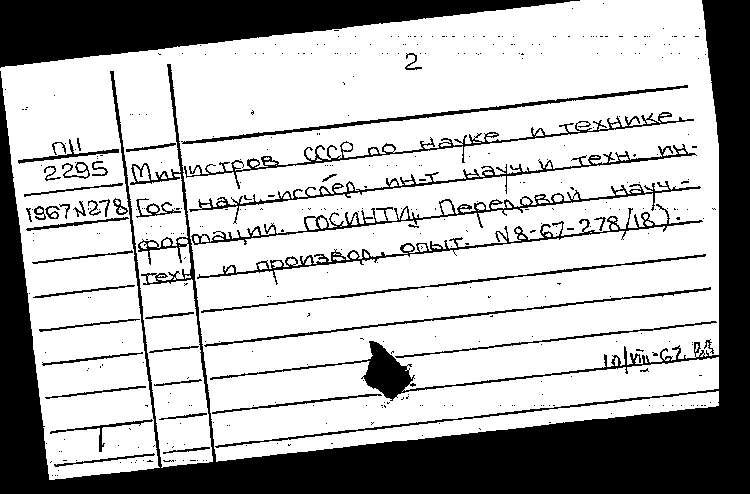 2
П11
2295 Министров СССР по науке и технике.
1967 N278 Гос. науч.-исслед. ин-т науч. и техн. ин-
формации. ГОСИНТИ. Передовой науч.-
техн. и производ. опыт. N8-67-278/18).
10/VIII-67.